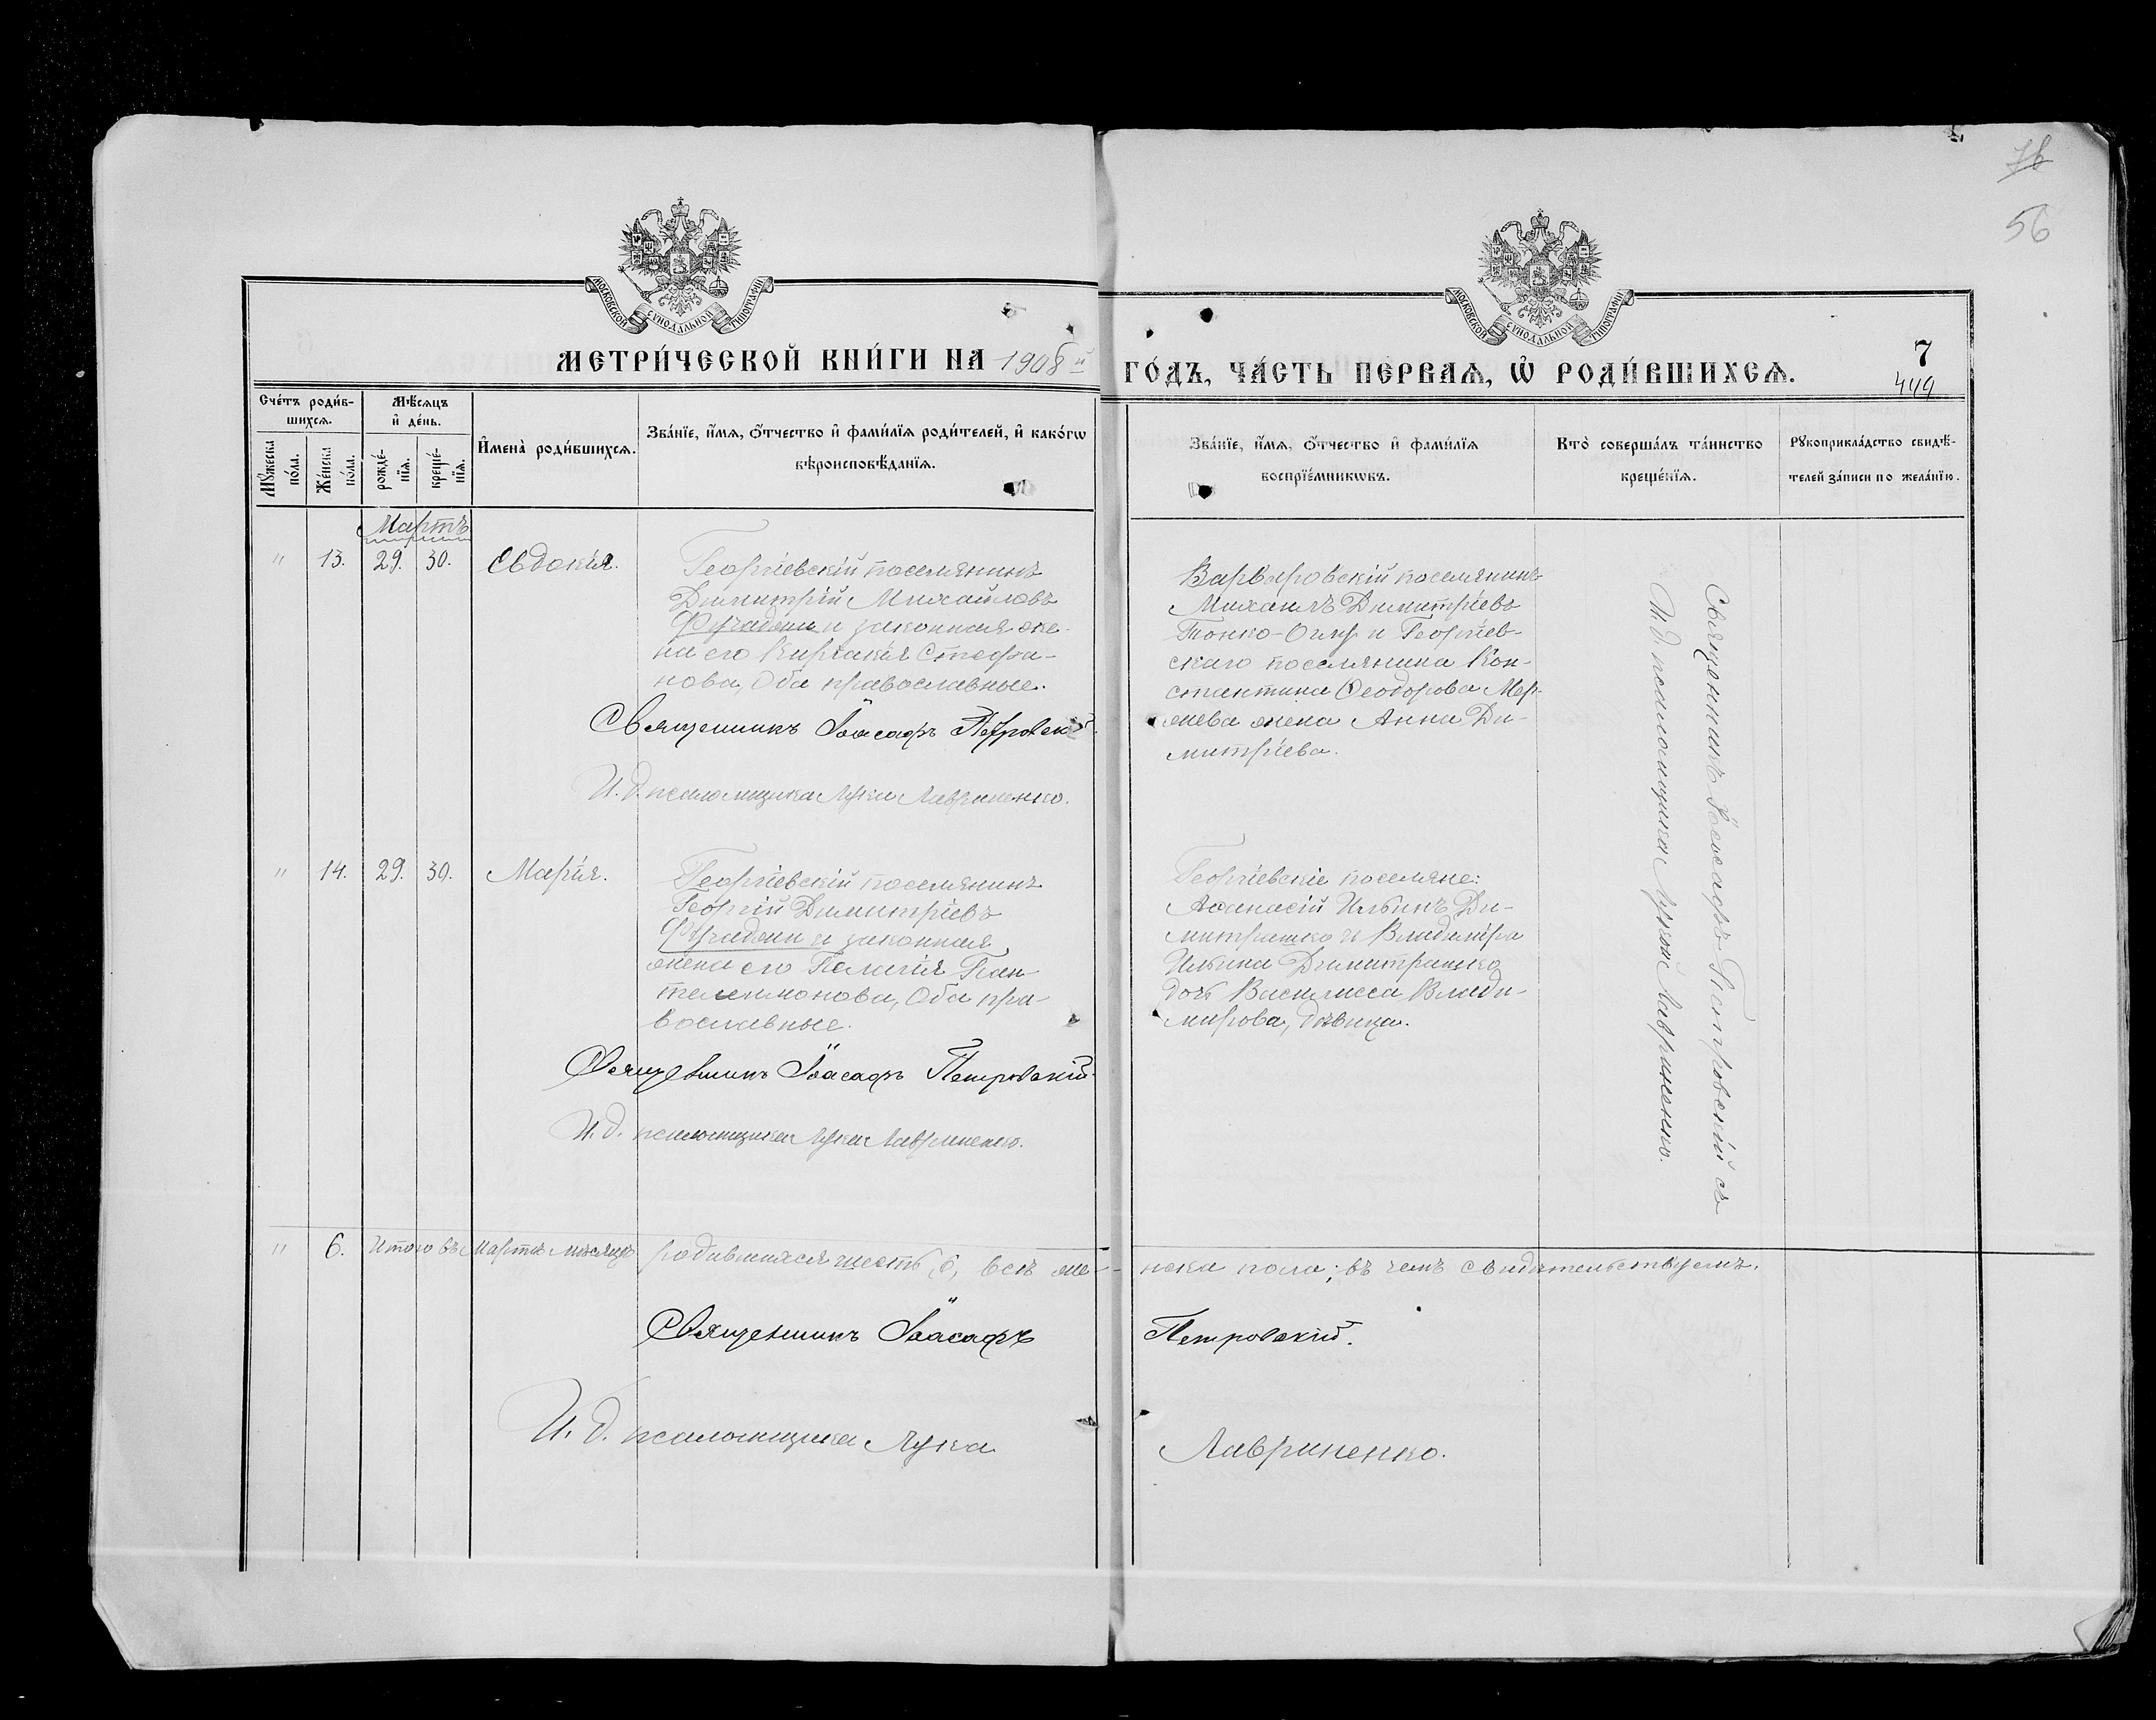 76
56
МОСКОВСКОЙ СѴНОДАЛЬНОЙ ТИПОГРАФІИ
МОСКОВСКОЙ СѴНОДАЛЬНОЙ ТИПОГРАФІИ
МЕТРИ́ЧЕСКОЙ КНИ́ГИ НА 1908 й
ГО́ДЪ, ЧА́СТЬ ПЕ́РВАѦ, Ѡ҆ РОДИ́ВШИХСѦ.
7
449
Сче́тъ роди́в-
шихсѧ.
Мꙋ́жеска по́ла.
Же́нска по́ла.
Мѣ́сѧцъ
и҆ де́нь.
рожде́-
нїѧ.
креще́-
нїѧ.
И҆мена̀ роди́вшихсѧ.
Зва́нїе, и҆́мѧ, ѻ҆́тчество и҆ фами́лїѧ роди́телей, и҆ како́гѡ
вѣроисповѣ́данїѧ.
Зва́нїе, и҆́мѧ, ѻ҆́тчество и҆ фами́лїѧ
воспрїе́мникѡвъ.
Кто̀ соверша́лъ та́инство
креще́нїѧ.
Рꙋкоприкла́дство свидѣ́-
телей за́писи по жела́нїю.
Мартъ
" 13. 29. 30. Евдокія.
Георгіевскій поселянинъ
Димитрій Михайловъ
и законная же-
на его Киріакія Стефа-
нова, Оба православные.
Священникъ Іоасафъ Петровскій.
И. д. псаломщика Лука Лавриненко.
Варваровскій поселянинъ
Михаилъ Димитріевъ
Тонко- и Георгіев-
скаго поселянина Кон-
стантина Ѳеодорова Мер-
жева жена Анна Ди-
митріева.
Священникъ Іоасафъ Петровскій съ
И. д. псаломщика Лукой Лавриненко.
" 14. 29. 30. Марія.
Георгіевскій поселянинъ
Георгій Димитріевъ
и законная
жена его Пелагія Пан-
телеимонова, Оба пра-
вославные.
Священникъ Іоасафъ Петровскій.
И. д. псаломщика Лука Лавриненко.
Георгіевскіе поселяне:
Аѳанасій Ильинъ Ди-
митрашко и Владиміра
Ильина Димитрашко
дочь Василисса Влади-
мирова, дѣвица.
" 6. Итого въ Мартѣ мѣсяцѣ родившихся шесть, 6, всѣ же-
нска пола; въ чемъ свидѣтельствуемъ.
Священникъ Іоасафъ Петровскій.
И. д. псаломщика Лука Лавриненко.